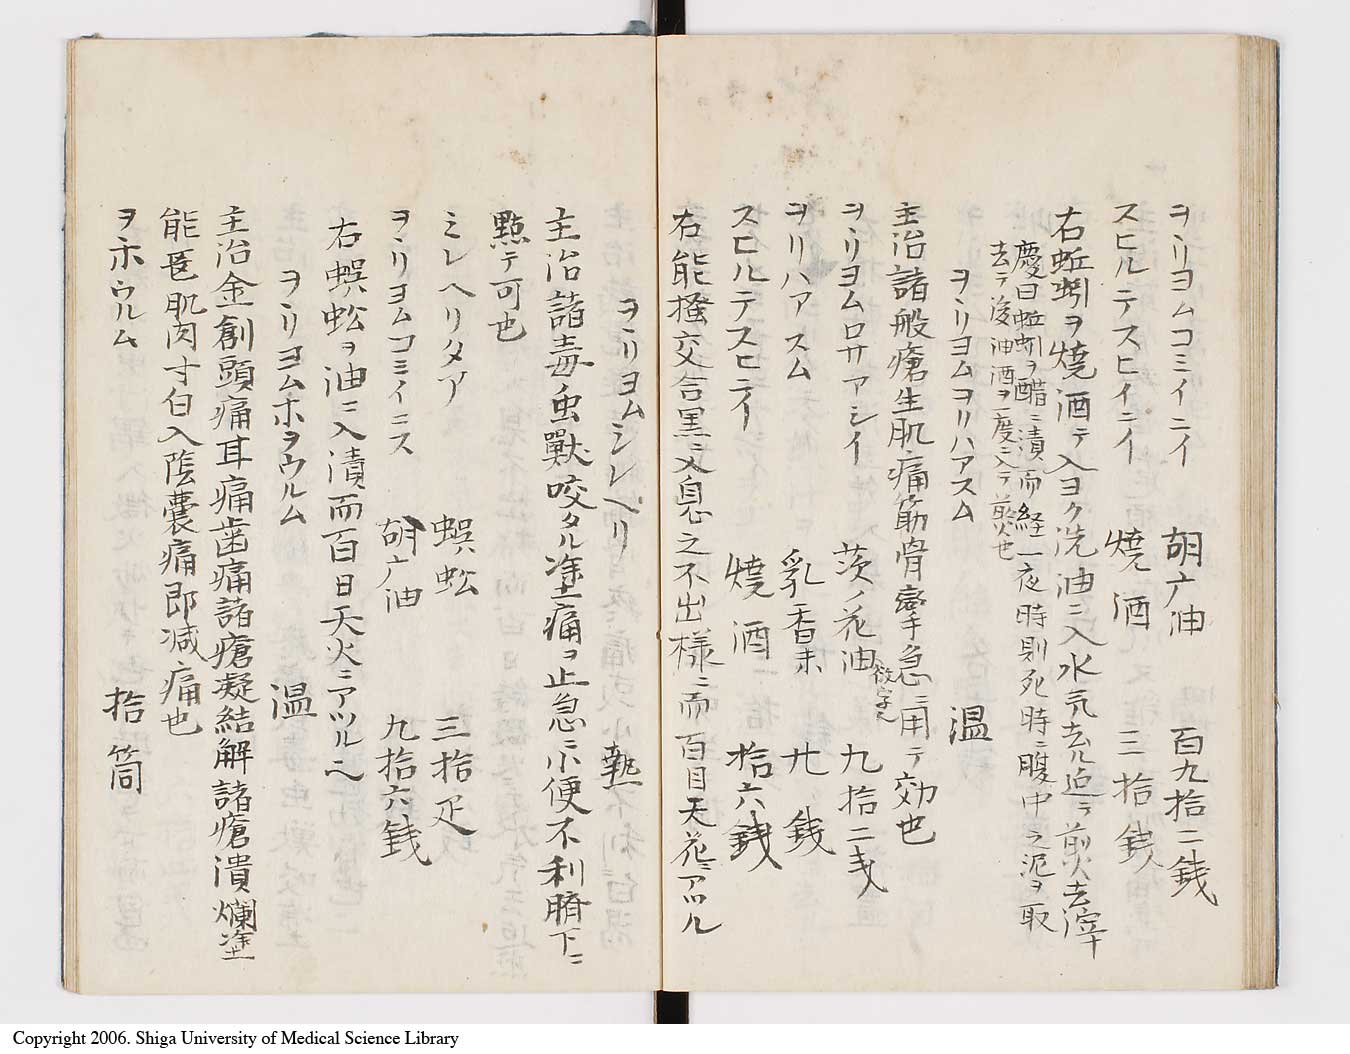 ヲヽリヨムコミイニイ　胡广油　百九拾二銭
スヒルテスヒイニイ　燒酒　三拾銭
右蚯蚓ヲ燒酒テ入ヨク洗油ニ入水気去ル迠ヲ煎火去滓
慶曰蚯蚓ヲ醋ニ漬而経一夜時則死時ニ腹中之泥ヲ取
去テ後油酒ヲ一度ニ入テ煎也
ヲヽリヨムヨリハアスム　温
主治諸般瘡生肌痛筋骨攣急ニ用テ効也
ヲヽリヨムロサアシイ　茨ノ花油　九拾二戔
ヲリハアスム　乳香末　廿銭
スヒルテスヒニイ　燒酒　拾六銭
右能掻交合黒ニ〆息之不出様ニ而百日天花ニアツル
ヲヽリヨムシレヘリ　熱
主治諸毒虫獸咬タル塗土痛ヲ止急ニ小便不利臍下ニ
點テ可也
ミレヘリタア　蜈蚣　三拾疋
ヲヽリヨムコミイニス　胡广油　九拾六銭
右蜈蚣ヲ油ニ入漬而百日天火ニアツル也
ヲヽリヨムホヲウルム　温
主治金創頭痛耳痛歯痛諸瘡凝結解諸瘡潰爛塗
能肌肉寸白入陰囊痛即减痛也
ヲホウルム　拾箇
Copyright 2006. Shiga University of Medical Science Library